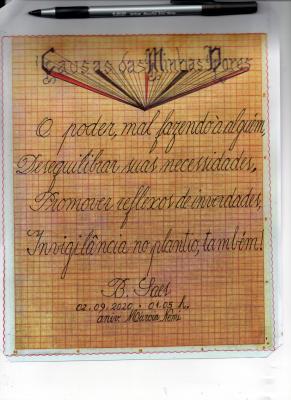 Causas das Minhas Dores
O poder, mal fazendo à alguém,
Desequilibrar suas necessidades,
Promover reflexos de inverdades,
Invigilância no plantio, também!
B. Saes
02.09.2020 - 01.05 h.
aniv. Marcia